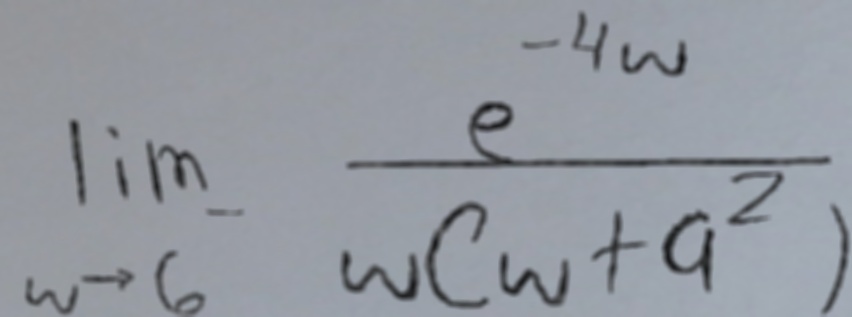 lim_{w→6^-} \frac{e^{-4w}}{w(w+a^2)}